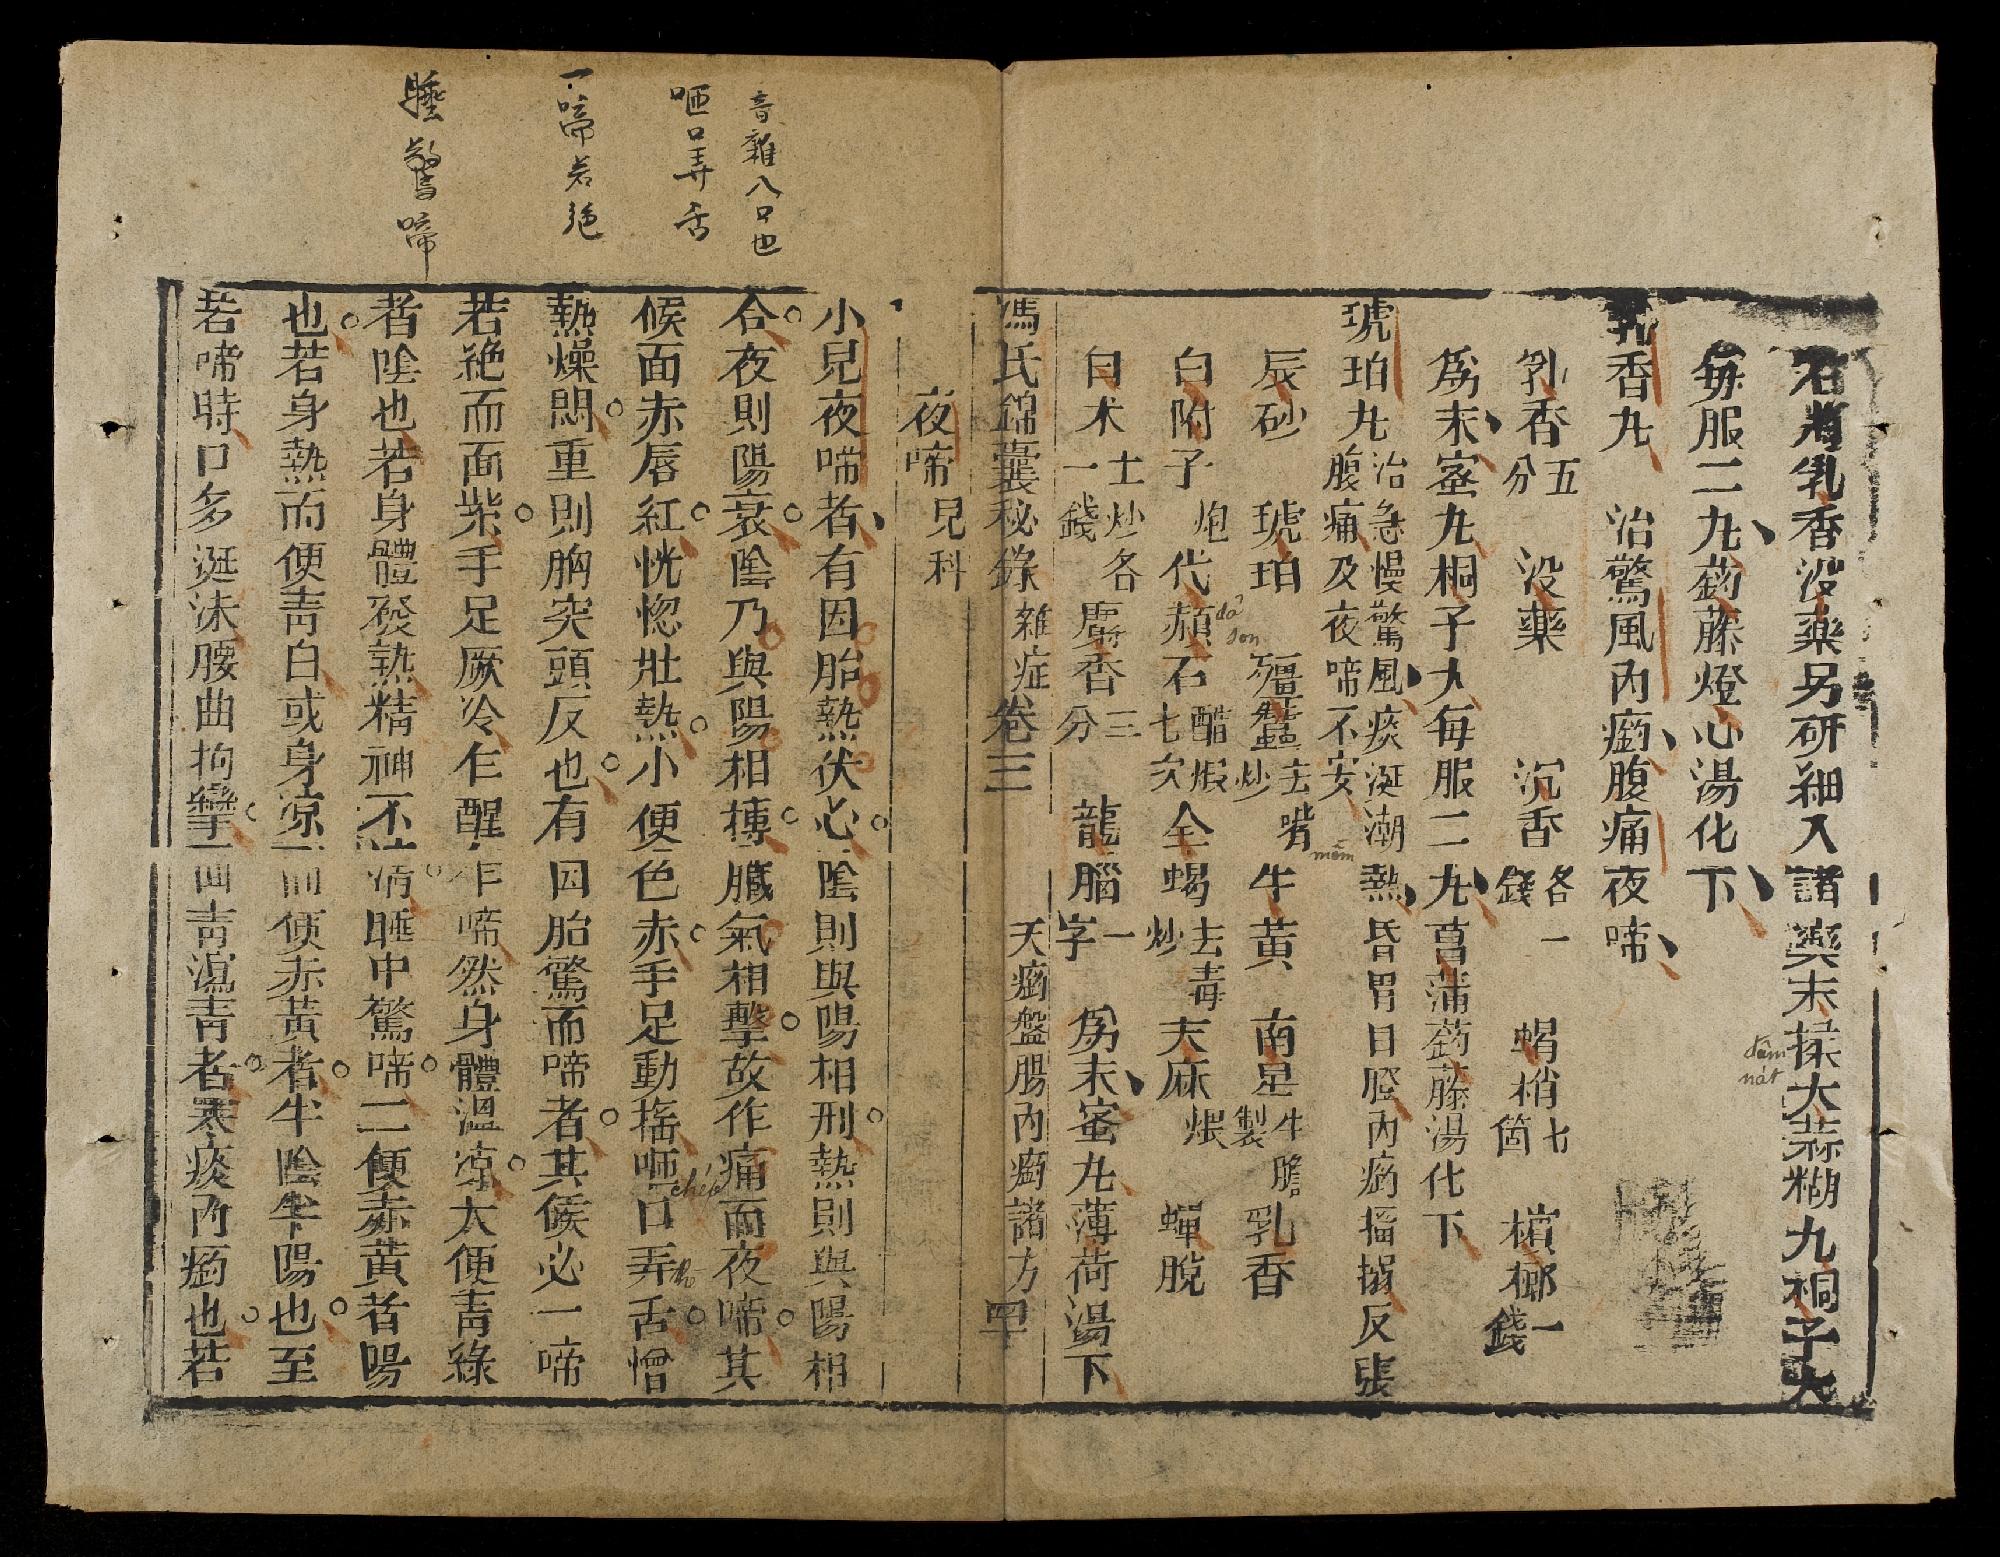 右將乳香沒藥另研細入諸藥末揉大蒜糊丸桐子大
đâm nát
每服二丸鈎藤燈心湯化下
乳香丸 治驚風內瘹腹痛夜啼
乳香五分 沒藥 沉香各一錢 蝎梢七箇 檳榔一錢
爲末蜜丸桐子大每服二丸菖蒲鈎藤湯化下
琥珀丸 治急慢驚風痰涎潮熱昏冒目瞪內瘹搐搦反張
腹痛及夜啼不安
mềm
辰砂 琥珀 殭蠶去嘴炒 牛黃 南星牛膽製 乳香
đỏ son
白附子炮 代赭石醋煆七次 全蝎去毒炒 天麻煨 蟬脫
白朮土炒各一錢 麝香三分 龍腦一字 爲末蜜丸薄荷湯下
馮氏錦囊秘錄 雜症卷三 天瘹盤腸內瘹諸方 四
夜啼兒科
小兒夜啼者有因胎熱伏心陰則與陽相刑熱則與陽相
合夜則陽衰陰乃與陽相摶臟氣相擊故作痛而夜啼其
候面赤唇紅恍惚壯熱小便色赤手足動搖咂口弄舌憎
chép
thò
熱燥悶重則胸突頭反也有因胎驚而啼者其候必一啼
若絕而面紫手足厥冷乍醒乍啼然身體溫涼大便青綠
者陰也若身體發熱精神不清睡中驚啼二便赤黃者陽
也若身熱而便青白或身涼而便赤黃者半陰半陽也至
若啼時口多涎沫腰曲拘攣面青瀉青者寒痰內瘹也若
音雜八口也
咂口弄舌
一啼若絕
睡驚啼